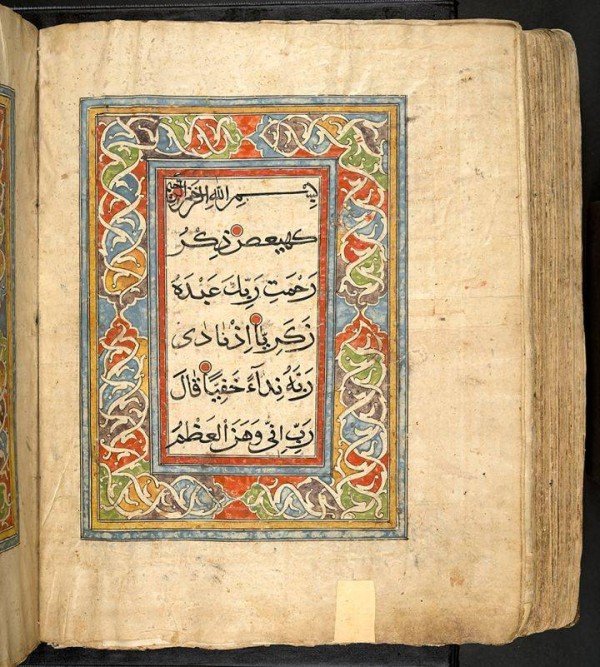 بِسْمِ اللهِ الرَّحْمٰنِ الرَّحِيمِ
كهيعص ذِكْرُ
رَحْمَتِ رَبِّكَ عَبْدَهُ
زَكَرِيَّا اِذْ نَادٰى
رَبَّهُ نِدَآءً خَفِيًّا قَالَ
رَبِّ اِنِّى وَهَنَ الْعَظْمُ